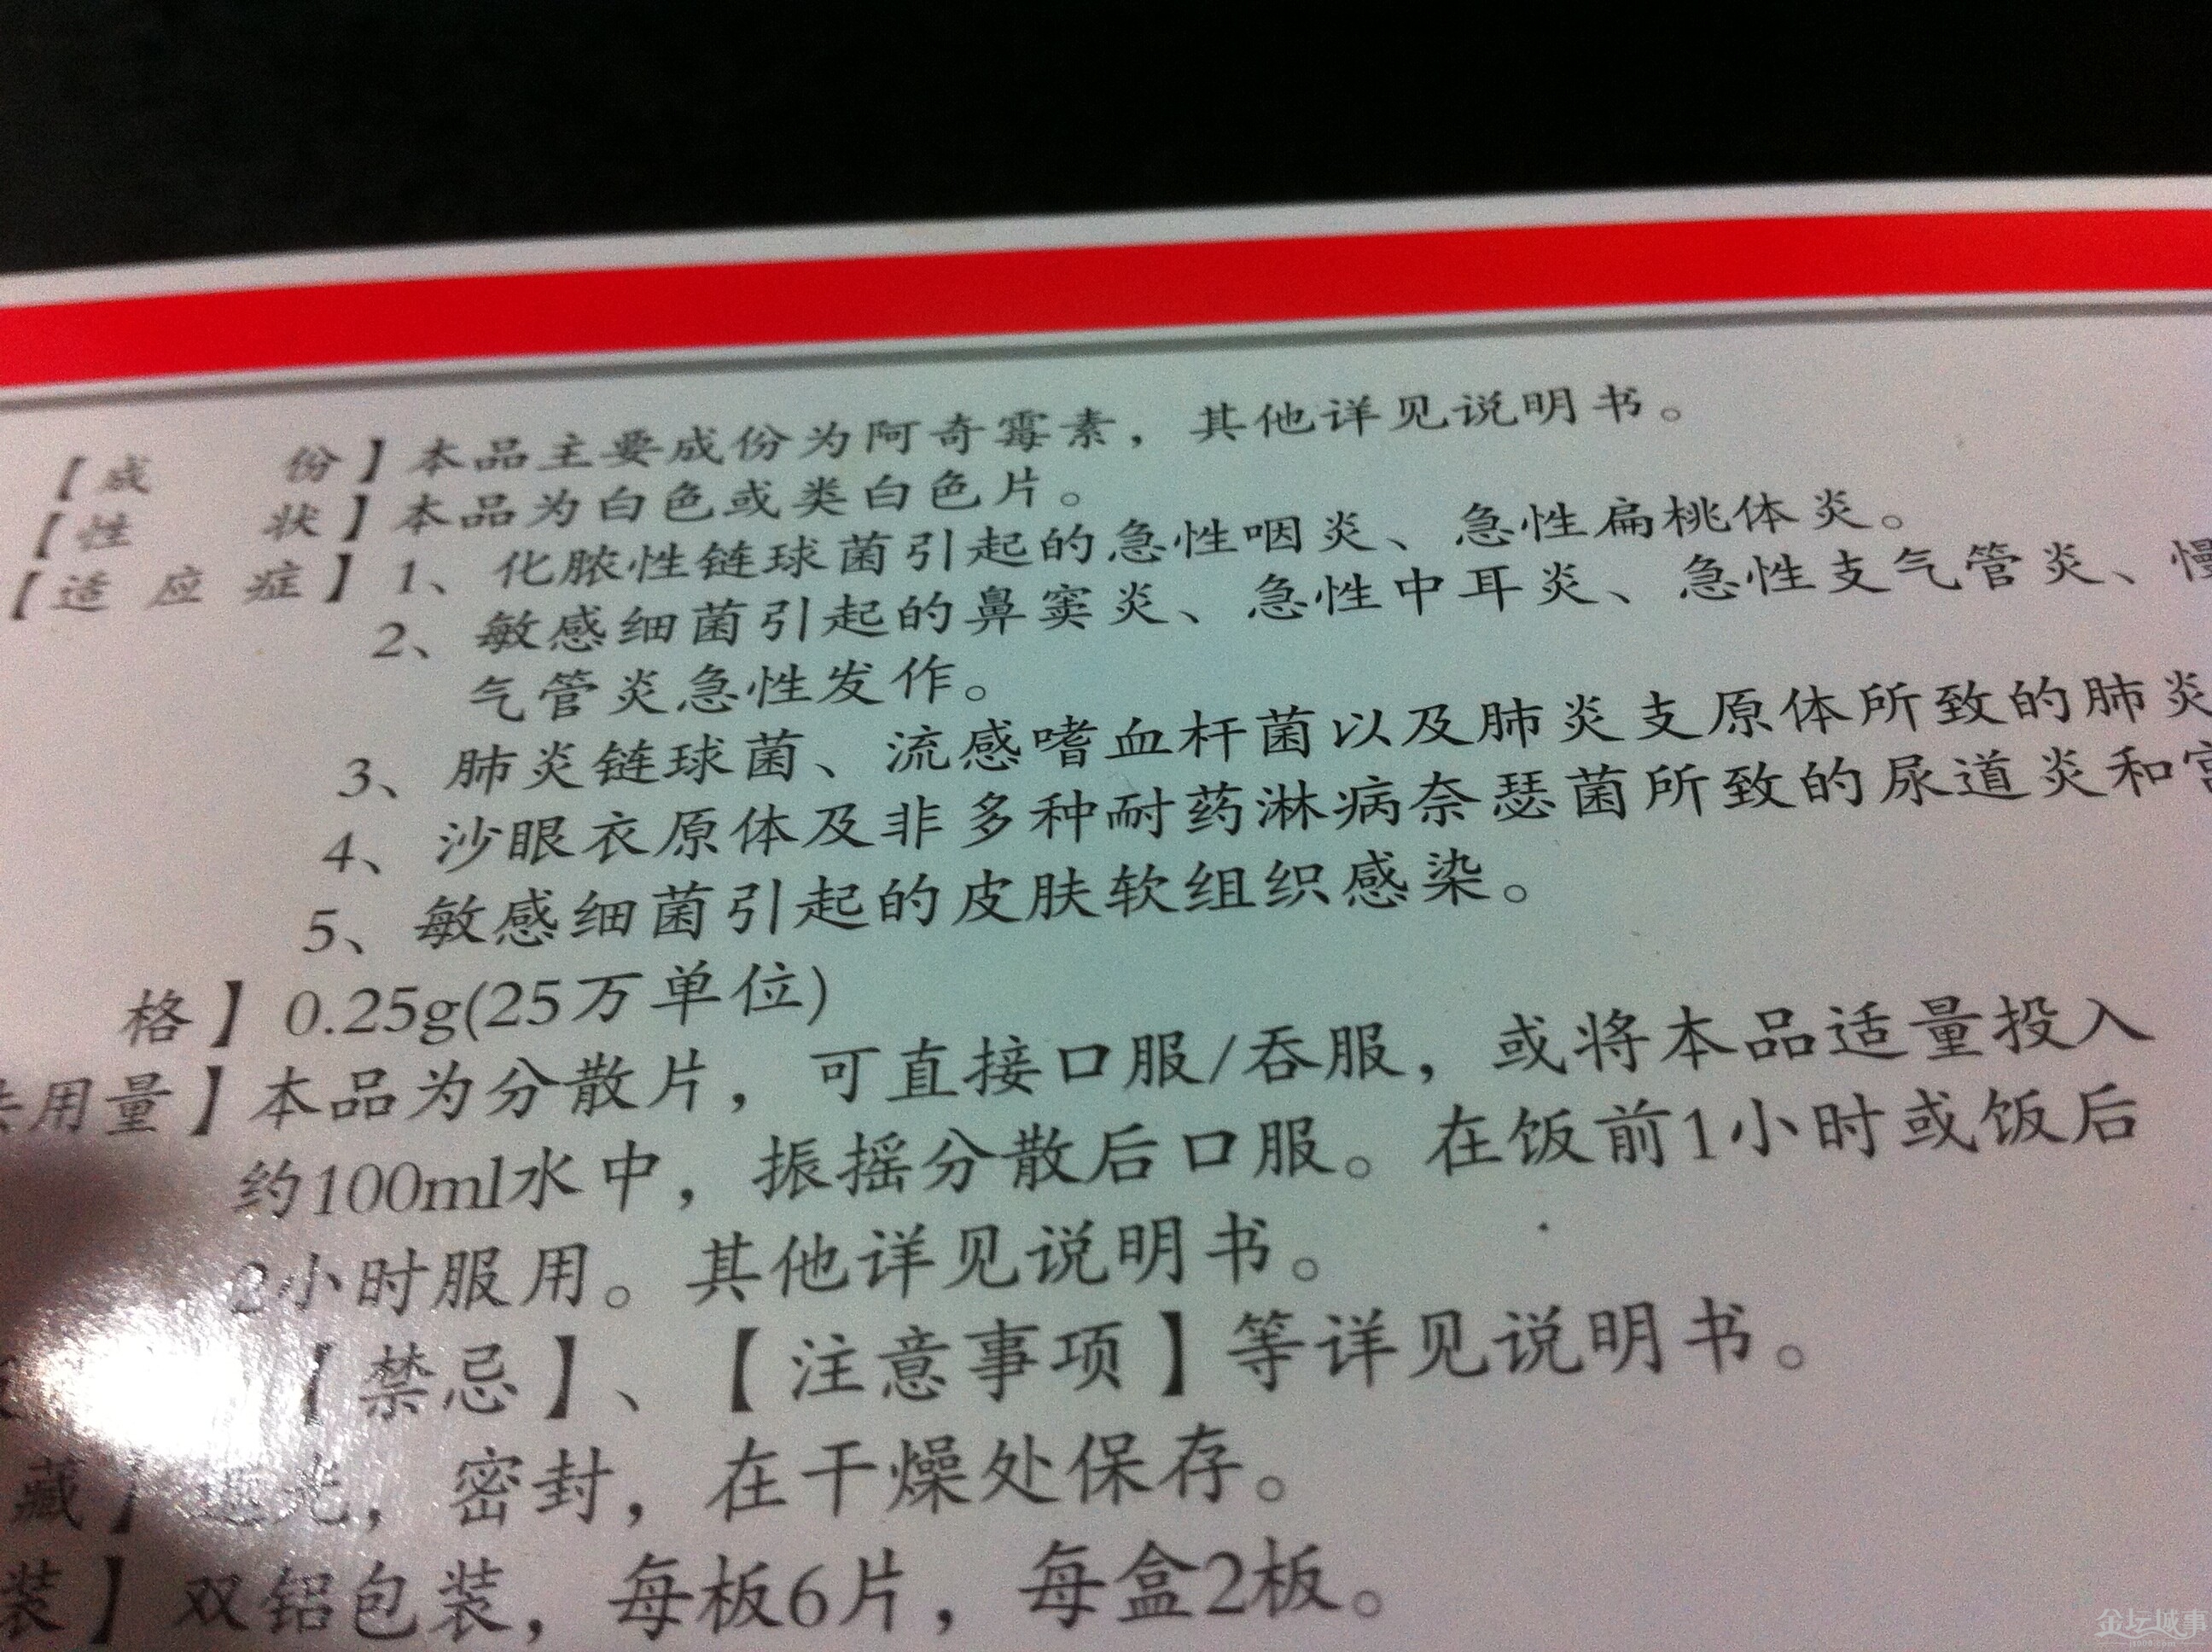 【成 份】本品主要成份为阿奇霉素，其他详见说明书。
【性 状】本品为白色或类白色片。
【适 应 症】1、化脓性链球菌引起的急性咽炎、急性扁桃体炎。
2、敏感细菌引起的鼻窦炎、急性中耳炎、急性支气管炎、慢
气管炎急性发作。
3、肺炎链球菌、流感嗜血杆菌以及肺炎支原体所致的肺炎
4、沙眼衣原体及非多种耐药淋病奈瑟菌所致的尿道炎和宫
5、敏感细菌引起的皮肤软组织感染。
格】0.25g(25万单位)
用量】本品为分散片，可直接口服/吞服，或将本品适量投入
约100ml水中，振摇分散后口服。在饭前1小时或饭后
2小时服用。其他详见说明书。
【禁忌】、【注意事项】等详见说明书。
藏】遮光，密封，在干燥处保存。
装】双铝包装，每板6片，每盒2板。
金坛城事